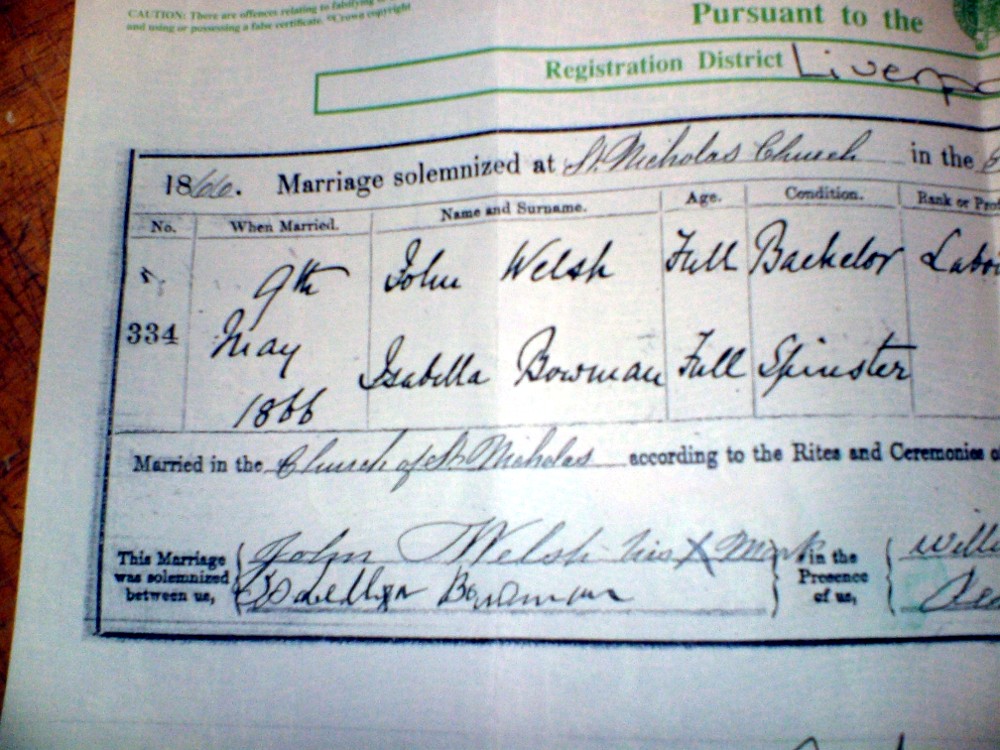 CAUTION: There are offences relating to falsifying
and using or possessing a false certificate. ©Crown copyright
Pursuant to the
Registration District Liverpo
1866. Marriage solemnized at St. Nicholas Church in the
No. When Married. Name and Surname. Age. Condition. Rank or Prof
334 9th May 1866
John Welsh Full Bachelor Labo
Isabella Bowman Full Spinster
Married in the Church of St. Nicholas according to the Rites and Ceremonies o
This Marriage was solemnized between us,
John Welsh his X Mark
Bowman
in the Presence of us,
Willi